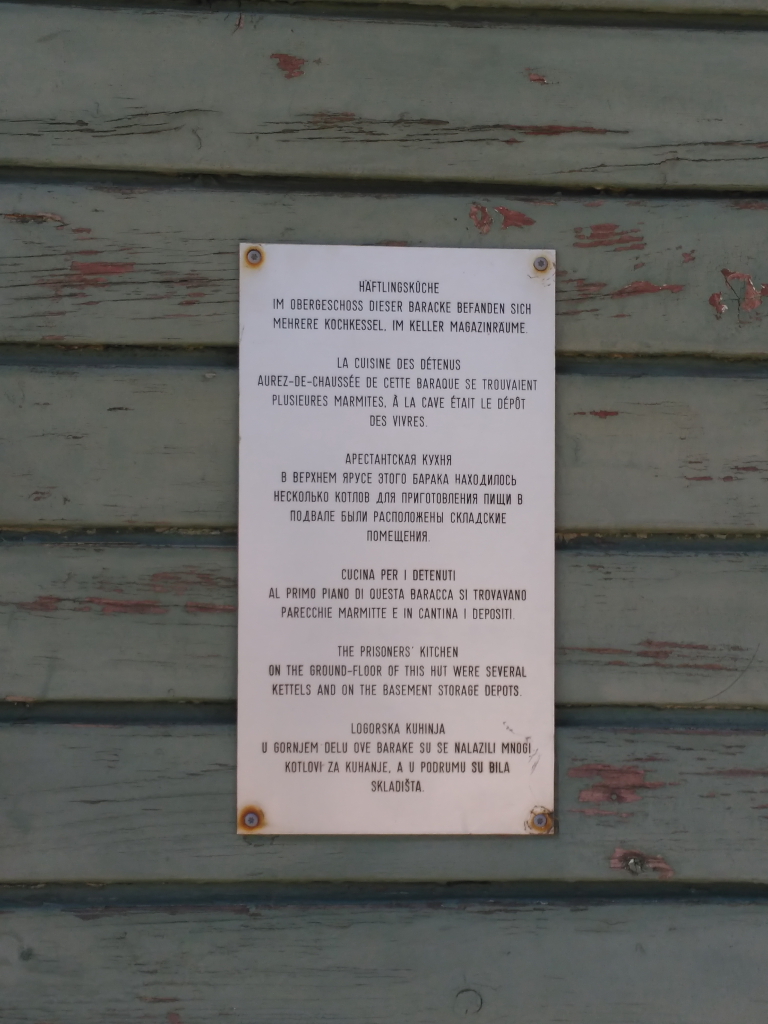 HÄFTLINGSKÜCHE
IM OBERGESCHOSS DIESER BARACKE BEFANDEN SICH
MEHRERE KOCHKESSEL, IM KELLER MAGAZINRÄUME.
LA CUISINE DES DÉTENUS
AUREZ-DE-CHAUSSÉE DE CETTE BARAQUE SE TROUVAIENT
PLUSIEURES MARMITES, À LA CAVE ÉTAIT LE DÉPÔT
DES VIVRES.
АРЕСТАНТСКАЯ КУХНЯ
В ВЕРХНЕМ ЯРУСЕ ЭТОГО БАРАКА НАХОДИЛОСЬ
НЕСКОЛЬКО КОТЛОВ ДЛЯ ПРИГОТОВЛЕНИЯ ПИЩИ В
ПОДВАЛЕ БЫЛИ РАСПОЛОЖЕНЫ СКЛАДСКИЕ
ПОМЕЩЕНИЯ.
CUCINA PER I DETENUTI
AL PRIMO PIANO DI QUESTA BARACCA SI TROVAVANO
PARECCHIE MARMITTE E IN CANTINA I DEPOSITI.
THE PRISONERS' KITCHEN
ON THE GROUND-FLOOR OF THIS HUT WERE SEVERAL
KETTELS AND ON THE BASEMENT STORAGE DEPOTS.
LOGORSKA KUHINJA
U GORNJEM DELU OVE BARAKE SU SE NALAZILI MNOGI
KOTLOVI ZA KUHANJE, A U PODRUMU SU BILA
SKLADIŠTA.